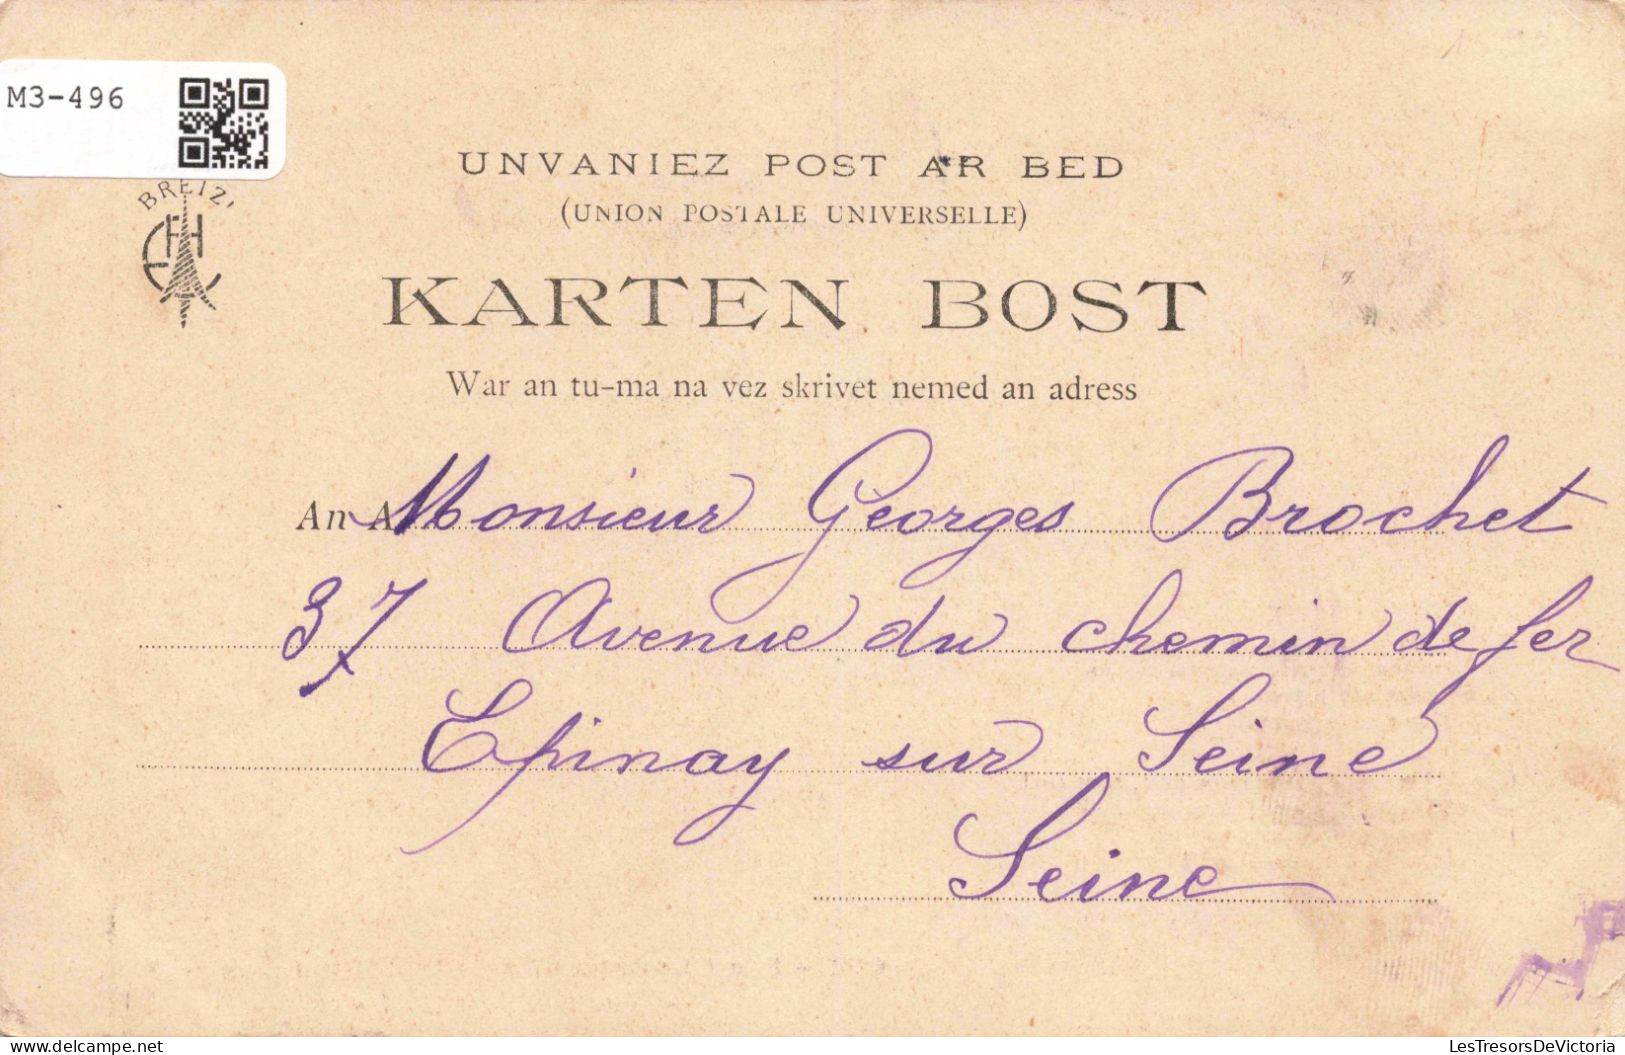 M3-496
BREIZ'
UNVANIEZ POST AR BED
(UNION POSTALE UNIVERSELLE)
KARTEN BOST
War an tu-ma na vez skrivet nemed an adress
An A
Monsieur Georges Brochet
37 Avenue du chemin de fer
Epinay sur Seine
Seine
delcampe.net
LesTresorsDeVictoria